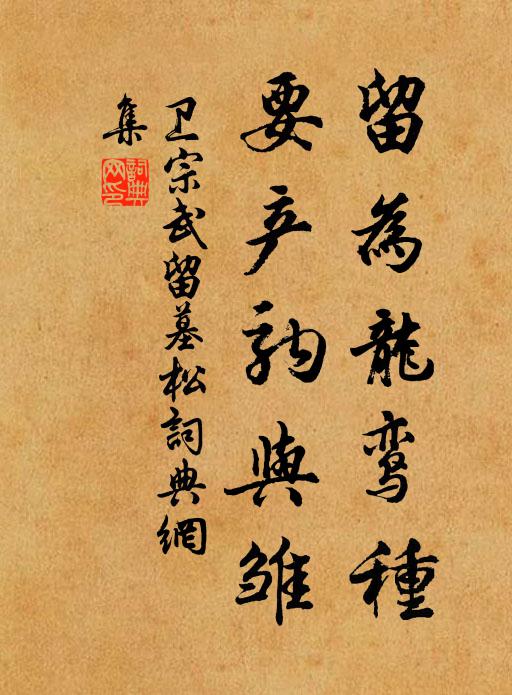 留為龍鸾種
要产駒與雏
卫宗武留墓松詞典網
集
詞典网印